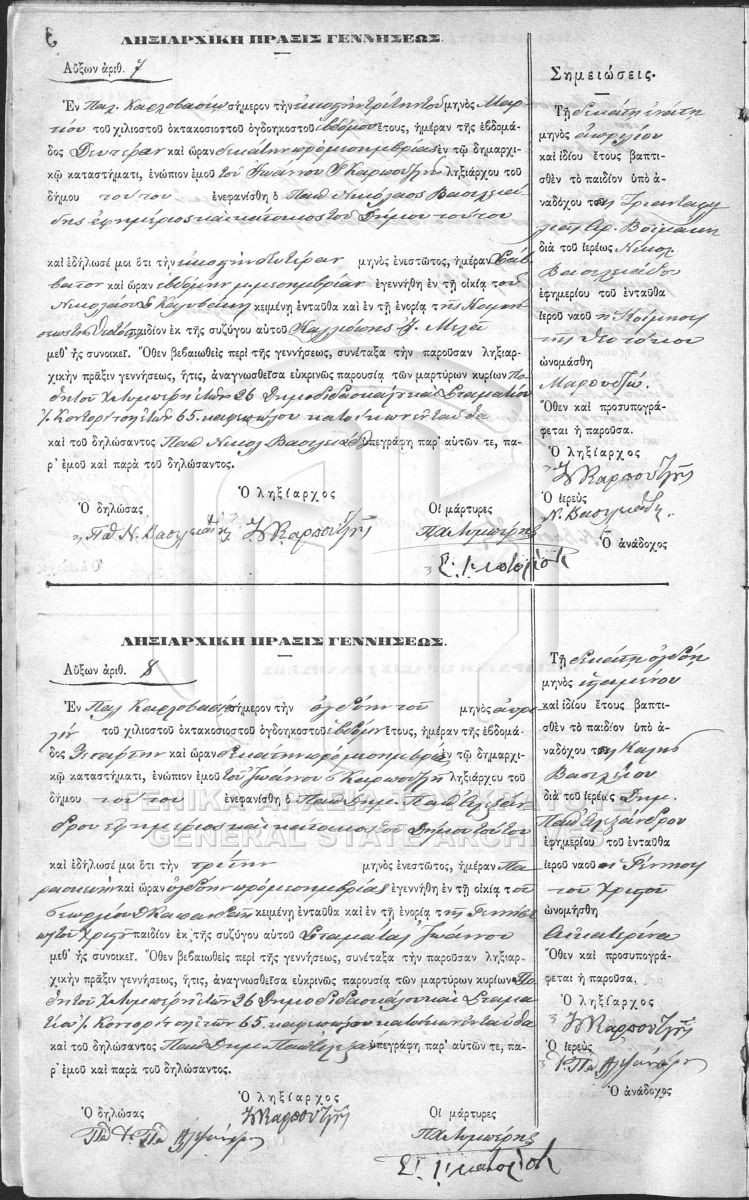 ΛΗΞΙΑΡΧΙΚΗ ΠΡΑΞΙΣ ΓΕΝΝΗΣΕΩΣ.
Αὔξων ἀριθ. 7
Ἐν Παλ. Καρλοβασίῳ σήμερον τὴν εἰκοστὴν τρίτην τοῦ μηνὸς Μαρ
τίου τοῦ χιλιοστοῦ ὀκτακοσιοστοῦ ὀγδοηκοστοῦ ἑβδόμου ἔτους, ἡμέραν τῆς ἑβδομά-
δος Δευτέραν καὶ ὥραν δεκάτην πρὸ μεσημβρίας ἐν τῷ δημαρχι-
κῷ καταστήματι, ἐνώπιον ἐμοῦ τοῦ Ἰωάννου Καρπούζη ληξιάρχου τοῦ
δήμου τούτου ἐνεφανίσθη ὁ Παπ Νικόλαος Βασιλειά
δης ἐφημέριος καὶ κάτοικος τοῦ Δήμου τούτου
καὶ ἐδήλωσέ μοι ὅτι τὴν εἰκοστὴν δευτέραν μηνὸς ἐνεστῶτος, ἡμέραν Σάβ
βατον καὶ ὥραν ἑβδόμην μ. μεσημβρίαν ἐγεννήθη ἐν τῇ οἰκίᾳ τοῦ
Νικολάου κειμένη ἐνταῦθα καὶ ἐν τῇ ἐνορίᾳ τῆς Κοιμή
σεως τῆς Θεοτόκου παιδίον ἐκ τῆς συζύγου αὐτοῦ
μεθ' ἧς συνοικεῖ. Ὅθεν βεβαιωθεὶς περὶ τῆς γεννήσεως, συνέταξα τὴν παροῦσαν ληξιαρ-
χικὴν πρᾶξιν γεννήσεως, ἥτις, ἀναγνωσθεῖσα εὐκρινῶς παρουσίᾳ τῶν μαρτύρων κυρίων Πο
ἐτῶν 26 Δημοδιδασκάλου καὶ Σταματίου
ἐτῶν 65 καφεπώλου κατοίκων ἐνταῦθα
καὶ τοῦ δηλώσαντος Παπ Νικολ Βασιλειάδου ὑπεγράφη παρ' αὐτῶν τε, πα-
ρ' ἐμοῦ καὶ παρὰ τοῦ δηλώσαντος.
Ὁ ληξίαρχος
Ὁ δηλώσας
Οἱ μάρτυρες
Παπ Ν. Βασιλειάδης
Ι Καρπούζης
Σημειώσεις.
Τῇ δεκάτῃ ἐνάτῃ
μηνὸς ἀπριλίου
καὶ ἰδίου ἔτους βαπτι-
σθὲν τὸ παιδίον ὑπὸ ἀ-
ναδόχου της
διὰ τοῦ ἱερέως Νικολ
Βασιλειάδου
ἐφημερίου τοῦ ἐνταῦθα
ἱεροῦ ναοῦ ἡ Κοίμησις
τῆς Θεοτόκου
ὠνομάσθη
Μαρουδιώ.
Ὅθεν καὶ προσυπογρά-
φεται ἡ παροῦσα.
Ὁ ληξίαρχος
Ι Καρπούζης
Ὁ ἱερεὺς
Ν. Βασιλειάδης
Ὁ ἀνάδοχος
ΛΗΞΙΑΡΧΙΚΗ ΠΡΑΞΙΣ ΓΕΝΝΗΣΕΩΣ.
Αὔξων ἀριθ. 8
Ἐν Παλ Καρλοβασίῳ σήμερον τὴν ὀγδόην τοῦ μηνὸς ἀπρι
λίου τοῦ χιλιοστοῦ ὀκτακοσιοστοῦ ὀγδοηκοστοῦ ἑβδόμου ἔτους, ἡμέραν τῆς ἑβδομά-
δος Τετάρτην καὶ ὥραν δεκάτην πρὸ μεσημβρίας ἐν τῷ δημαρχι-
κῷ καταστήματι, ἐνώπιον ἐμοῦ τοῦ Ἰωάννου Καρπούζη ληξιάρχου τοῦ
δήμου τούτου ἐνεφανίσθη ὁ Παπ Δημ. Παπ Ἀλεξάν
δρου ἐφημέριος καὶ κάτοικος τοῦ Δήμου τούτου
καὶ ἐδήλωσέ μοι ὅτι τὴν τρίτην μηνὸς ἐνεστῶτος, ἡμέραν Πα
ρασκευὴν καὶ ὥραν ὀγδόην πρὸ μεσημβρίας ἐγεννήθη ἐν τῇ οἰκίᾳ τοῦ
Γεωργίου κειμένη ἐνταῦθα καὶ ἐν τῇ ἐνορίᾳ τῆς Γεννήσε
ως τοῦ Χριστοῦ παιδίον ἐκ τῆς συζύγου αὐτοῦ Σταματας Ἰωάννου
μεθ' ἧς συνοικεῖ. Ὅθεν βεβαιωθεὶς περὶ τῆς γεννήσεως, συνέταξα τὴν παροῦσαν ληξιαρ-
χικὴν πρᾶξιν γεννήσεως, ἥτις, ἀναγνωσθεῖσα εὐκρινῶς παρουσίᾳ τῶν μαρτύρων κυρίων Πο
ἐτῶν 26 Δημοδιδασκάλου καὶ Σταμα
τίου ἐτῶν 65 καφεπώλου κατοίκων ἐνταῦθα
καὶ τοῦ δηλώσαντος Παπ Δημ. Παπ Ἀλεξάν ὑπεγράφη παρ' αὐτῶν τε, πα-
ρ' ἐμοῦ καὶ παρὰ τοῦ δηλώσαντος.
Ὁ ληξίαρχος
Ὁ δηλώσας
Ι Καρπούζης
Οἱ μάρτυρες
Τῇ δεκάτῃ ὀγδόῃ
μηνὸς
καὶ ἰδίου ἔτους βαπτι-
σθὲν τὸ παιδίον ὑπὸ ἀ-
ναδόχου της
Βασιλείου
διὰ τοῦ ἱερέως Δημ.
Παπ Ἀλεξάνδρου
ἐφημερίου τοῦ ἐνταῦθα
ἱεροῦ ναοῦ ἡ Γέννησις
τοῦ Χριστοῦ
ὠνομάσθη
Αἰκατερίνα
Ὅθεν καὶ προσυπογρά-
φεται ἡ παροῦσα.
Ὁ ληξίαρχος
Ι Καρπούζης
Ὁ ἱερεὺς
Ὁ ἀνάδοχος
ΓΕΝΙΚΑ ΑΡΧΕΙΑ ΤΟΥ ΚΡΑΤΟΥΣ
GENERAL STATE ARCHIVES